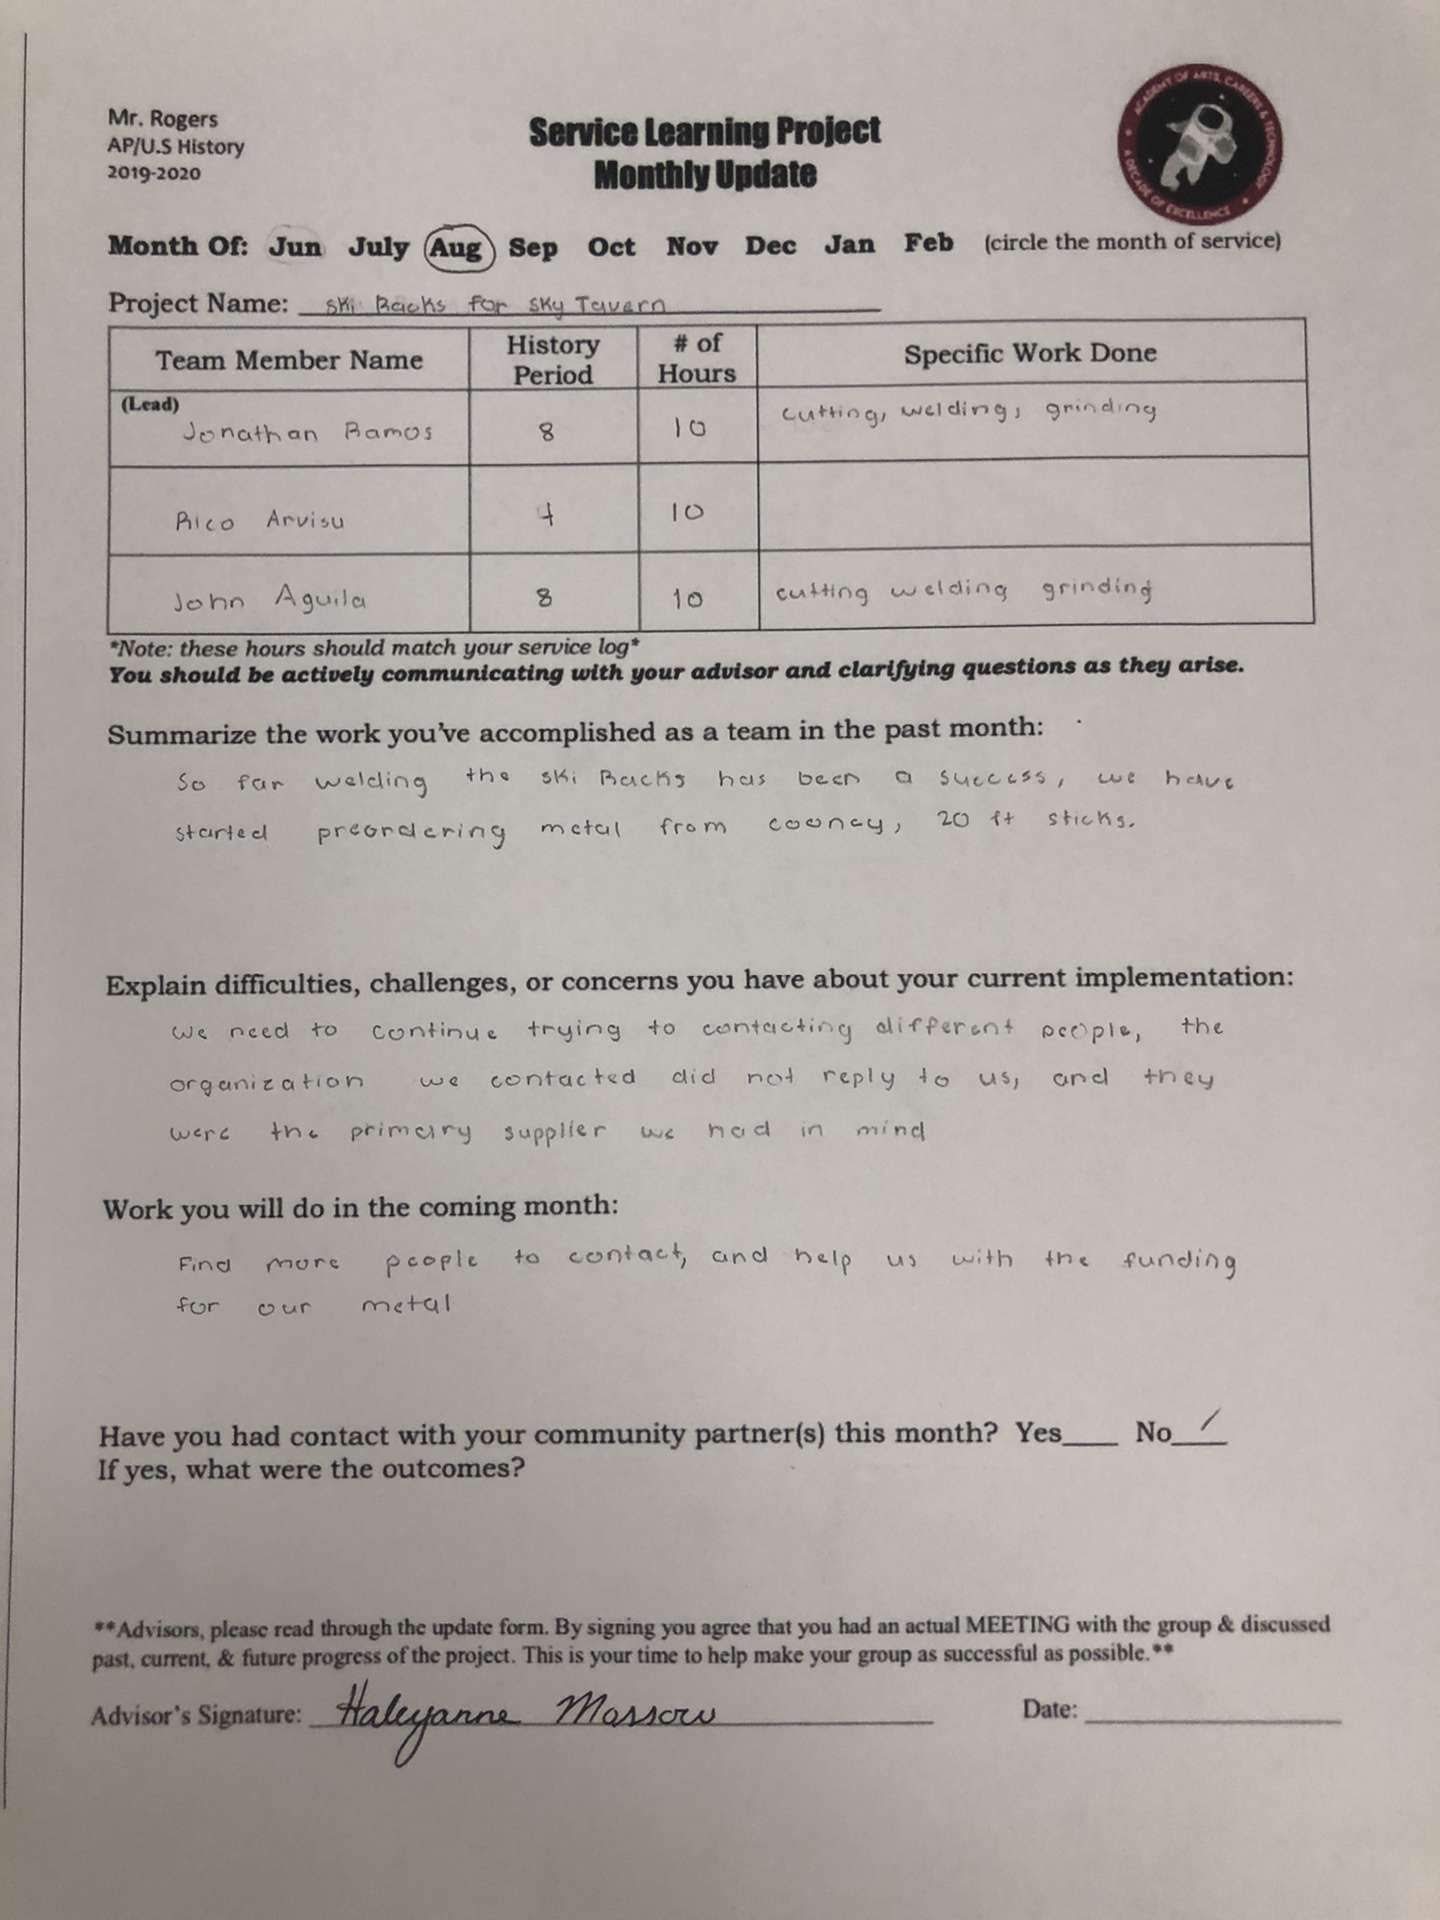 Mr. Rogers
AP/U.S History
2019-2020
Service Learning Project
Monthly Update
ACADEMY OF ARTS, CAREERS & TECHNOLOGY
A DECADE OF EXCELLENCE
Month Of: Jun July Aug Sep Oct Nov Dec Jan Feb (circle the month of service)
Project Name: Ski Racks for Sky Tavern
Team Member Name History Period # of Hours Specific Work Done
(Lead)
Jonathan Ramos 8 10 cutting, welding, grinding
Rico Arvisu 10
John Aguila 8 10 cutting welding grinding
*Note: these hours should match your service log*
You should be actively communicating with your advisor and clarifying questions as they arise.
Summarize the work you've accomplished as a team in the past month:
So far welding the ski Racks has been a success, we have
started preordering metal from cooney, 20 ft sticks.
Explain difficulties, challenges, or concerns you have about your current implementation:
we need to continue trying to contacting different people, the
organization we contacted did not reply to us, and they
were the primary supplier we had in mind
Work you will do in the coming month:
Find more people to contact, and help us with the funding
for our metal
Have you had contact with your community partner(s) this month? Yes____ No____
If yes, what were the outcomes?
**Advisors, please read through the update form. By signing you agree that you had an actual MEETING with the group & discussed
past, current, & future progress of the project. This is your time to help make your group as successful as possible.**
Advisor's Signature: Haleyanne Mossow Date: